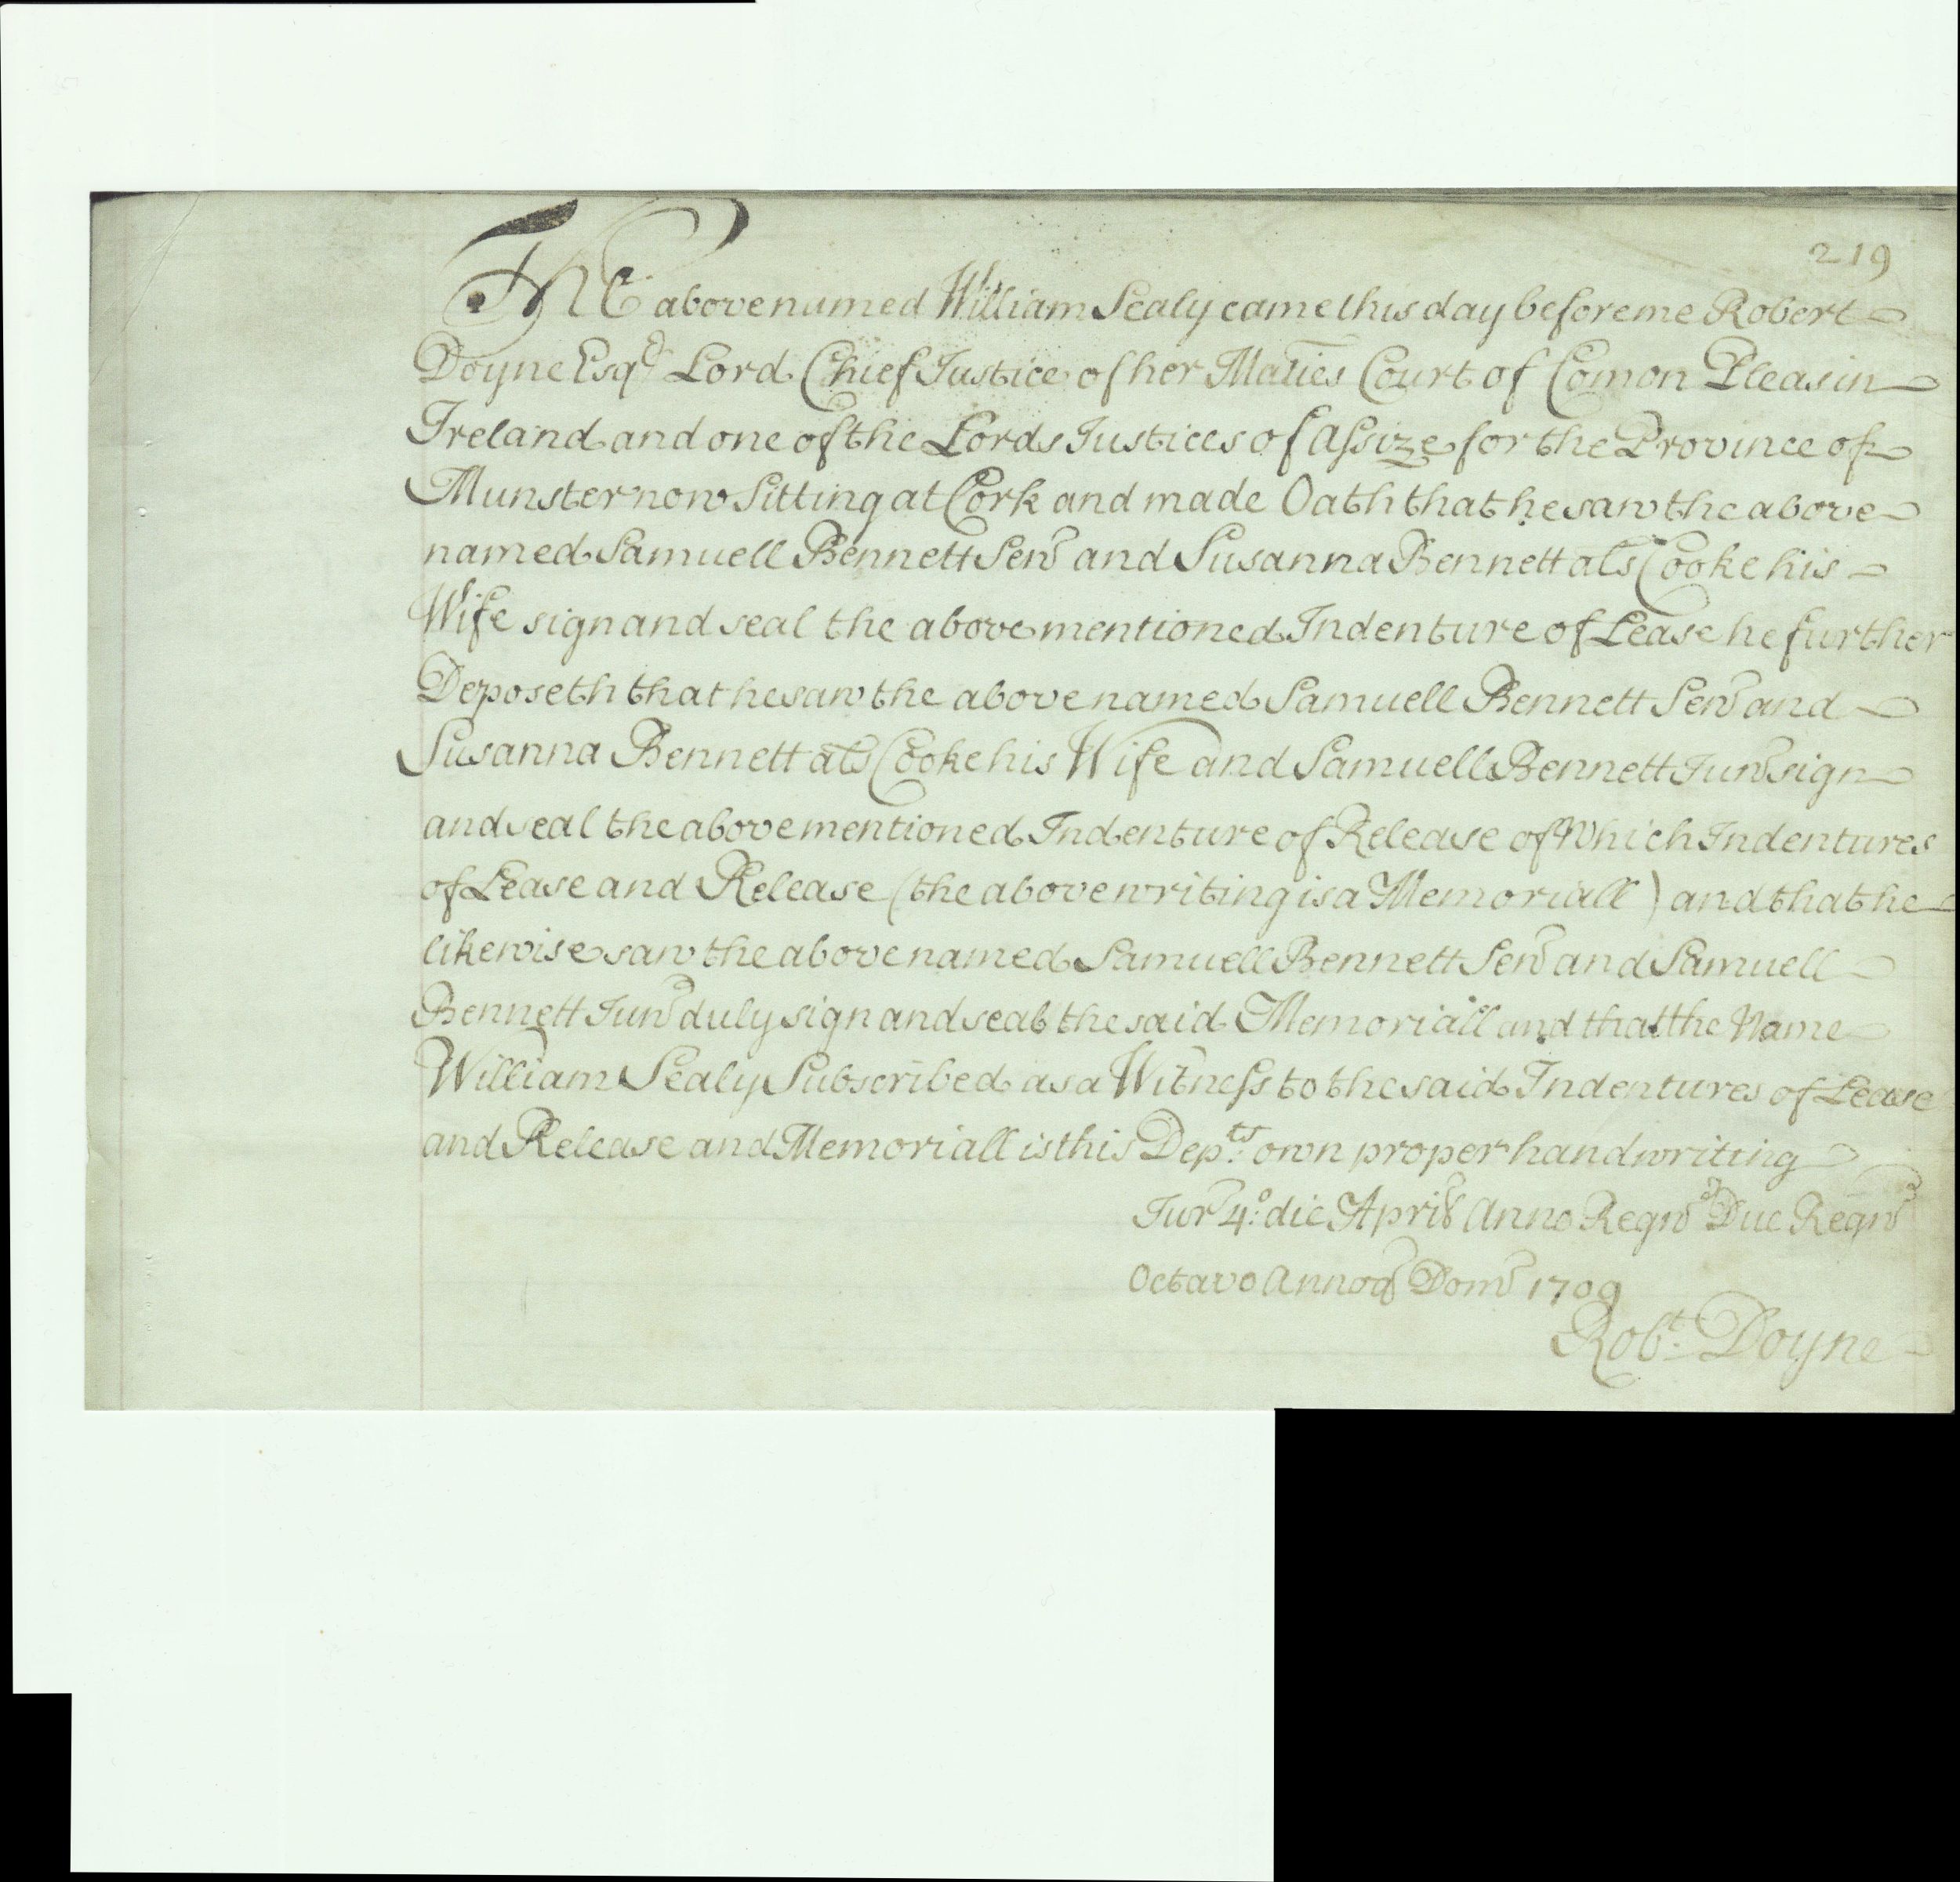 219
The above named William Sealy came this day before me Robert
Doyne Esqr Lord Chief Justice of her Maties Court of Comon Pleas in
Ireland and one of the Lords Justices of Assize for the Province of
Munster now Sitting at Cork and made Oath that he saw the above
named Samuell Bennett Senr and Susanna Bennett als Cooke his
Wife sign and seal the above mentioned Indenture of Lease he further
Deposeth that he saw the above named Samuell Bennett Senr and
Susanna Bennett als Cooke his Wife and Samuell Bennett Junr sign
and seal the above mentioned Indenture of Release of Which Indentures
of Lease and Release (the above writing is a Memoriall) and that he
likewise saw the above named Samuell Bennett Senr and Samuell
Bennett Junr duly sign and seal the said Memoriall and that the Name
William Sealy Subscribed as a Witness to the said Indentures of Lease
and Release and Memoriall is this Depts own proper handwriting
Jur 4o die Aprils Anno Regnr Due Regnr
Octavo Annoq Domr 1709
Robt Doyne